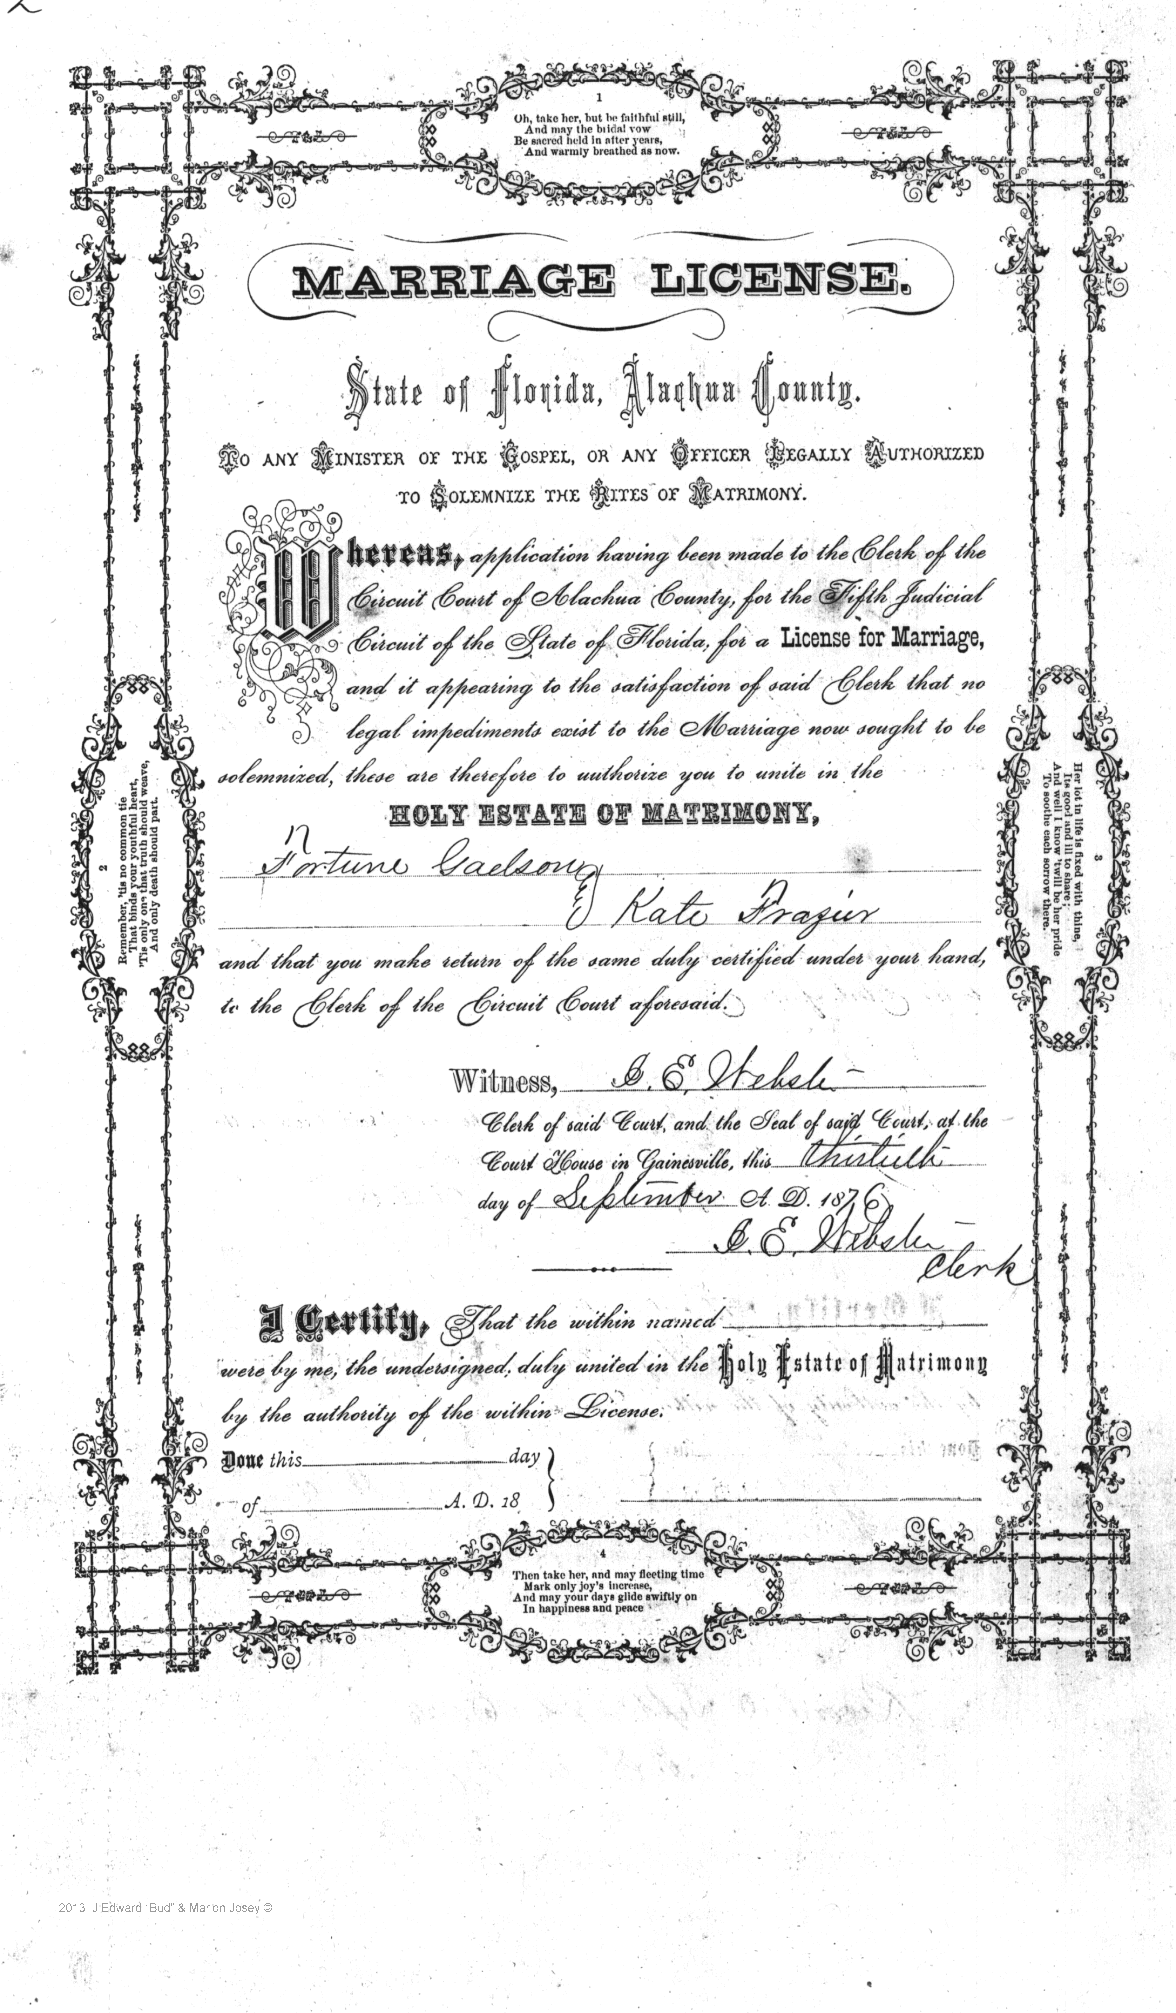 1
Oh, take her, but be faithful still,
And may the bridal vow
Be sacred held in after years,
And warmly breathed as now.
MARRIAGE LICENSE.
State of Florida, Alachua County.
TO ANY MINISTER OF THE GOSPEL, OR ANY OFFICER LEGALLY AUTHORIZED
TO SOLEMNIZE THE RITES OF MATRIMONY.
Whereas, application having been made to the Clerk of the
Circuit Court of Alachua County, for the Fifth Judicial
Circuit of the State of Florida, for a License for Marriage,
and it appearing to the satisfaction of said Clerk that no
legal impediments exist to the Marriage now sought to be
solemnized, these are therefore to authorize you to unite in the
HOLY ESTATE OF MATRIMONY,
Fortune Gaelson
& Kate Frazier
and that you make return of the same duly certified under your hand,
to the Clerk of the Circuit Court aforesaid.
Witness, J. E. Webster
Clerk of said Court, and the Seal of said Court, at the
Court House in Gainesville, this thirtieth
day of September A. D. 1876
J. E. Webster
Clerk
I Certify, That the within named
were by me, the undersigned, duly united in the Holy Estate of Matrimony
by the authority of the within License.
Done this day
of A. D. 18
2
Remember, 'tis no common tie
That binds your youthful heart,
'Tis only one that truth should weave,
And only death should part.
3
Her lot in life is fixed with thine,
Its good and ill to share;
And well I know 'twill be her pride
To soothe each sorrow there.
4
Then take her, and may fleeting time
Mark only joy's increase,
And may your days glide swiftly on
In happiness and peace
2013 J Edward "Bud" & Marion Josey ©